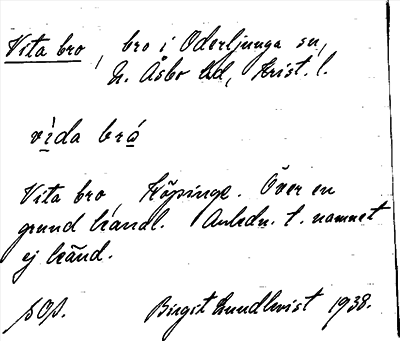 Vita bro, bro i Oderljunga sn,
N. Åsbo hd, Krist. l.
vìda brá
Vita bro, Köpinge. Över en
grund kanal. Anledn. t. namnet
ej känd.
SOp. Birgit Lundkvist 1938.